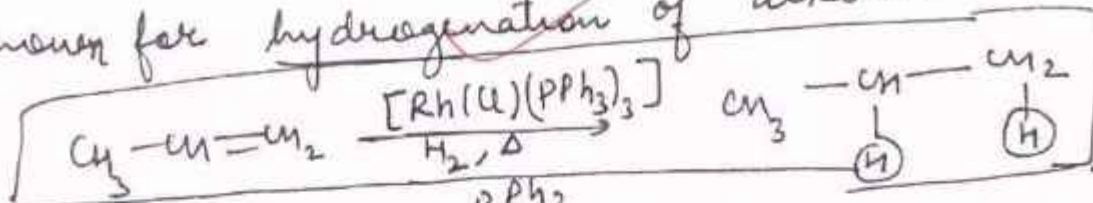 for hydrogenation of
CH3 - CH = CH2 [Rh(Cl)(PPh3)3] H2, Δ → CH3 - CH - CH2
H H
PPh3